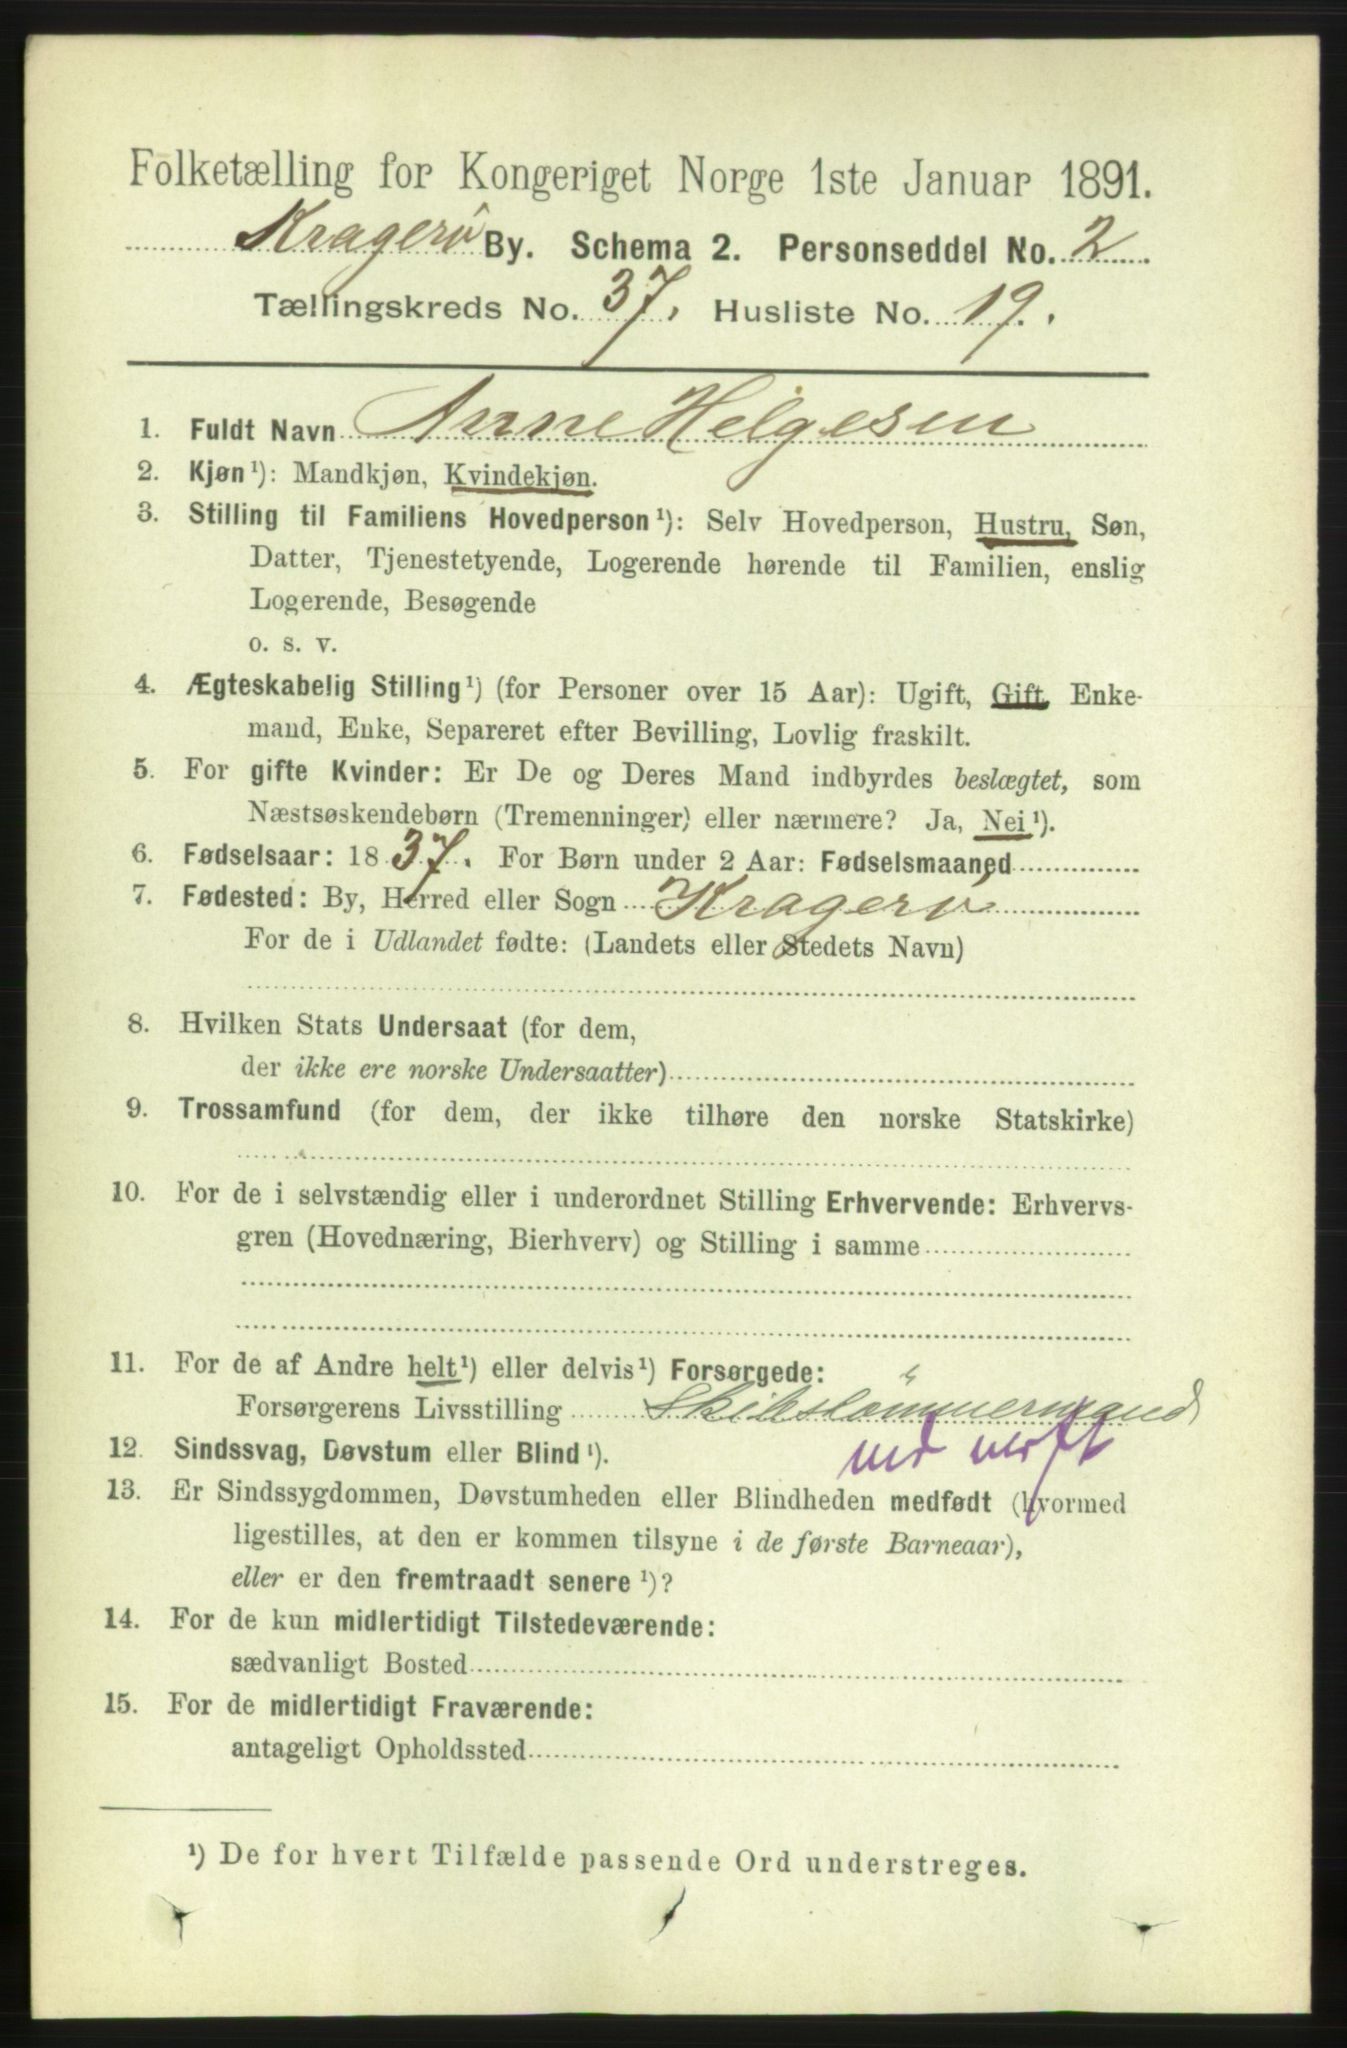 Folketælling for Kongeriget Norge 1ste Januar 1891.
Kragerø By. Schema 2. Personseddel No. 2
Tællingskreds No. 37. Husliste No. 19.
1. Fuldt Navn Anne Helgesen
2. Kjøn¹): Mandkjøn, Kvindekjøn.
3. Stilling til Familiens Hovedperson¹): Selv Hovedperson, Hustru, Søn,
Datter, Tjenestetyende, Logerende hørende til Familien, enslig
Logerende, Besøgende
o. s. v.
4. Ægteskabelig Stilling¹) (for Personer over 15 Aar): Ugift, Gift, Enke-
mand, Enke, Separeret efter Bevilling, Lovlig fraskilt.
5. For gifte Kvinder: Er De og Deres Mand indbyrdes beslægtet, som
Næstsøskendebørn (Tremenninger) eller nærmere? Ja, Nei¹).
6. Fødselsaar: 1837. For Børn under 2 Aar: Fødselsmaaned
7. Fødested: By, Herred eller Sogn Kragerø
For de i Udlandet fødte: (Landets eller Stedets Navn)
8. Hvilken Stats Undersaat (for dem,
der ikke ere norske Undersaatter)
9. Trossamfund (for dem, der ikke tilhøre den norske Statskirke)
10. For de i selvstændig eller i underordnet Stilling Erhvervende: Erhvervs-
gren (Hovednæring, Bierhverv) og Stilling i samme
11. For de af Andre helt¹) eller delvis¹) Forsørgede:
Forsørgerens Livsstilling Skibstömmermand
12. Sindssvag, Døvstum eller Blind¹).
13. Er Sindssygdommen, Døvstumheden eller Blindheden medfødt (hvormed
ligestilles, at den er kommen tilsyne i de første Barneaar),
eller er den fremtraadt senere¹)?
14. For de kun midlertidigt Tilstedeværende:
sædvanligt Bosted
15. For de midlertidigt Fraværende:
antageligt Opholdssted
¹) De for hvert Tilfælde passende Ord understreges.